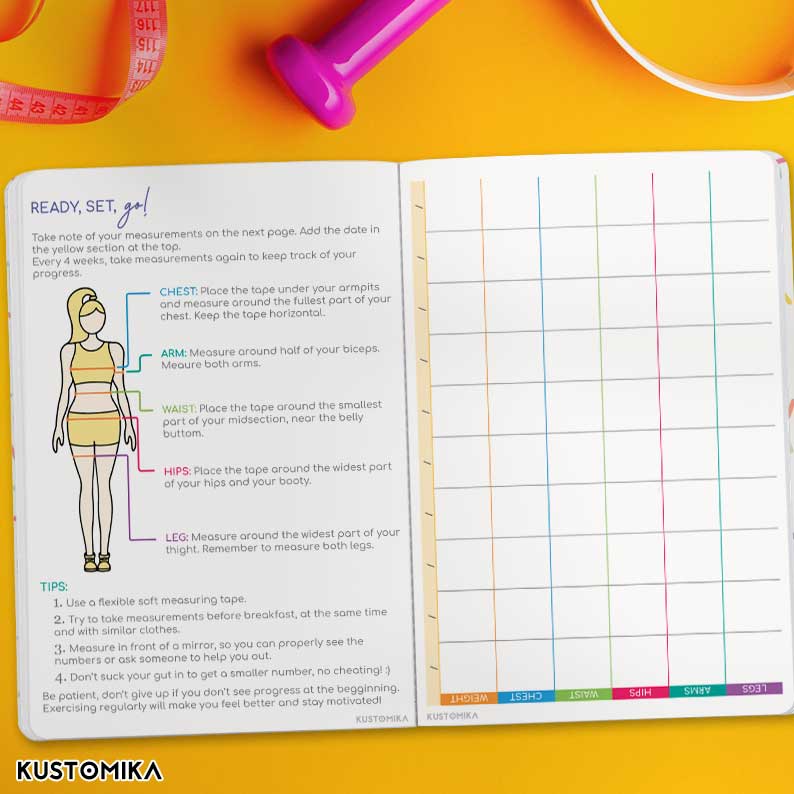 117
116
115
114
113
44
43
42
READY, SET, go!
Take note of your measurements on the next page. Add the date in
the yellow section at the top.
Every 4 weeks, take measurements again to keep track of your
progress.
CHEST: Place the tape under your armpits
and measure around the fullest part of your
chest. Keep the tape horizontal.
ARM: Measure around half of your biceps.
Meaure both arms.
WAIST: Place the tape around the smallest
part of your midsection, near the belly
buttom.
HIPS: Place the tape around the widest part
of your hips and your booty.
LEG: Measure around the widest part of your
thigh. Remember to measure both legs.
TIPS:
1. Use a flexible soft measuring tape.
2. Try to take measurements before breakfast, at the same time
and with similar clothes.
3. Measure in front of a mirror, so you can properly see the
numbers or ask someone to help you out.
4. Don't suck your gut in to get a smaller number, no cheating! :)
Be patient, don't give up if you don't see progress at the begginning.
Exercising regularly will make you feel better and stay motivated!
KUSTOMIKA
WEIGHT CHEST WAIST HIPS ARMS LEGS
KUSTOMIKA
KUSTOMIKA